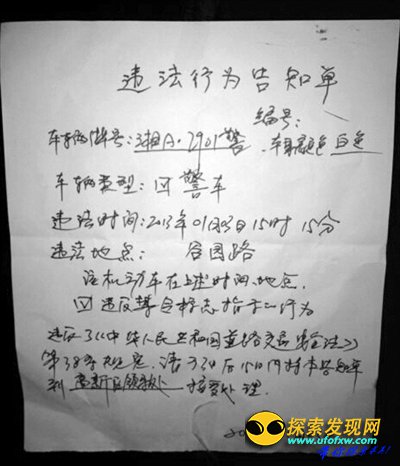 违法行为告知单
编号：
车辆牌号：湘A·2901警 车身颜色 白色
车辆类型：☑警车
违法时间：2013年01月03日15时15分
违法地点： 谷园路
该机动车在上述时间、地点，
☑ 违反禁令标志指示的行为
违反了《中华人民共和国道路交通安全法》
第38条规定，请于3日后15日内持本告知单
到 接受处理。
探索发现网
www.ufofxw.com